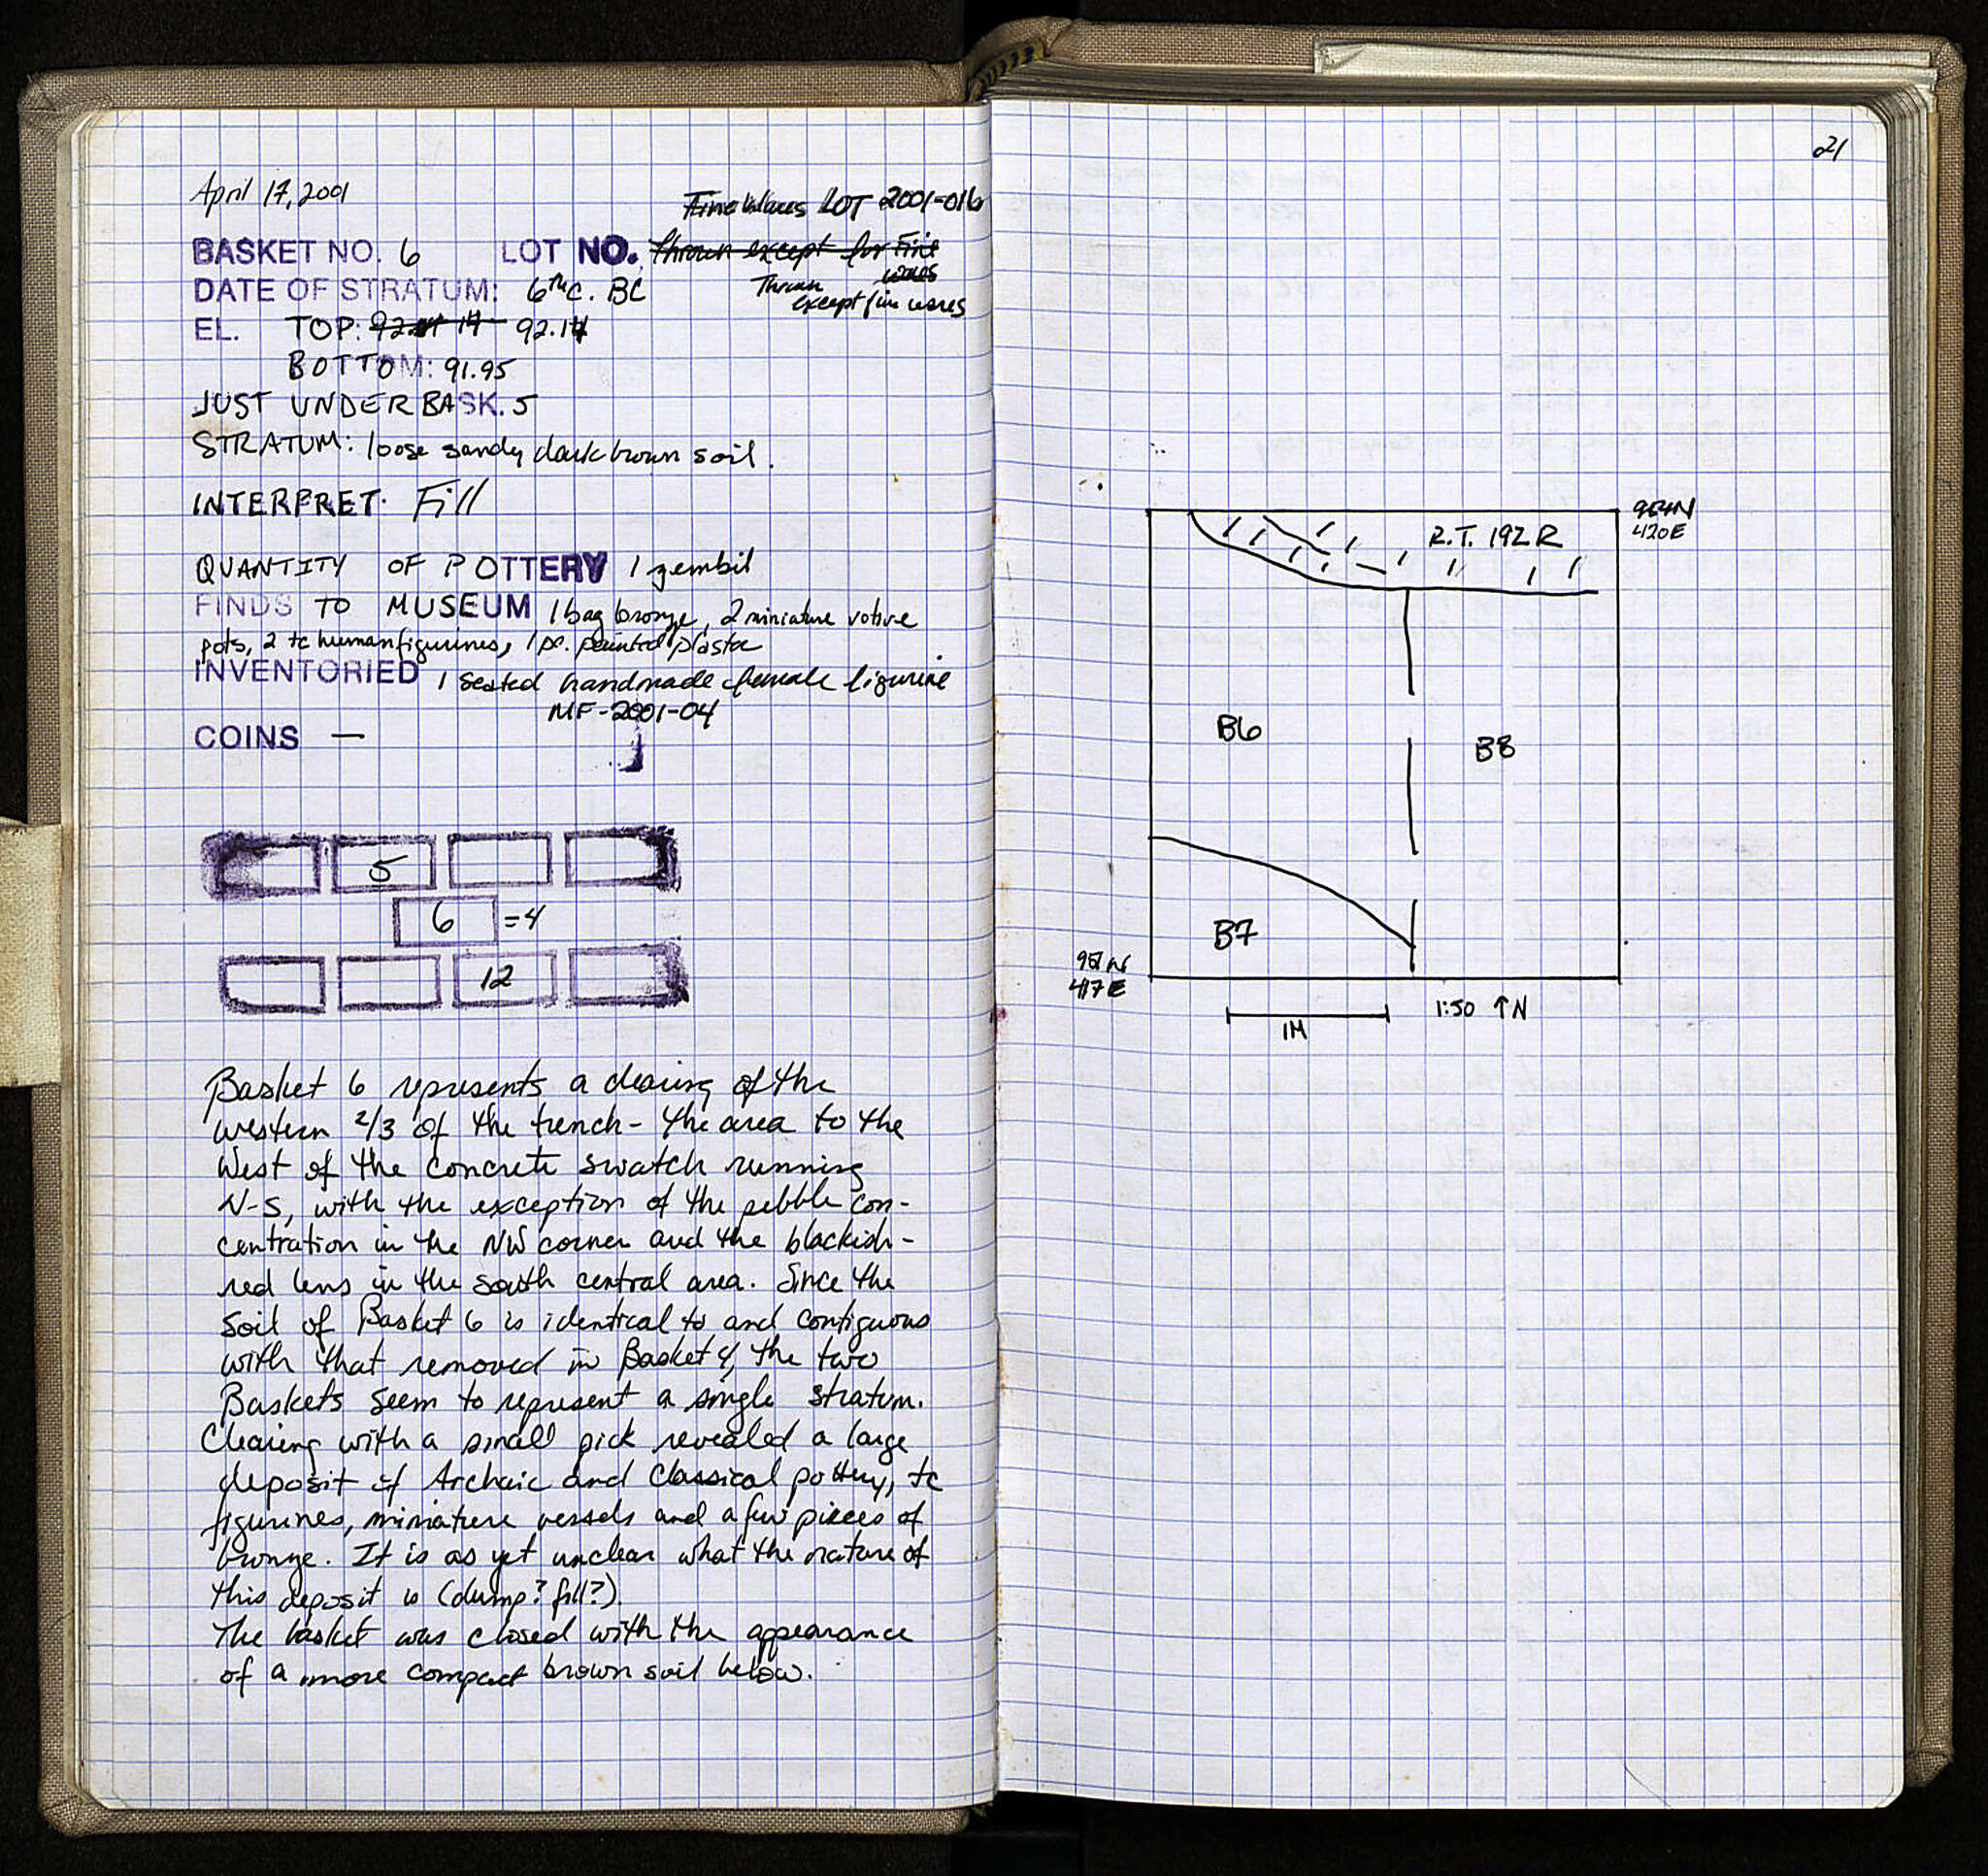 April 17, 2001
Fine Wares LOT 2001-016
BASKET NO. 6 LOT NO. Thrown except for Fine wares
Thrown except fine wares
DATE OF STRATUM: 6th c. BC
EL. TOP: 92.14
BOTTOM: 91.95
JUST UNDER BASK. 5
STRATUM: loose sandy dark brown soil.
INTERPRET. Fill
QUANTITY OF POTTERY 1 zembil
FINDS TO MUSEUM 1 bag bronze, 2 miniature votive
pots, 2 tc human figurines, 1 pc. painted plaster
INVENTORIED 1 seated handmade female figurine
MF-2001-04
COINS —
5
6 =4
12
Basket 6 represents a clearing of the
western 2/3 of the trench - the area to the
West of the concrete swatch running
N-S, with the exception of the pebble con-
centration in the NW corner and the blackish-
red lens in the south central area. Since the
soil of Basket 6 is identical to and contiguous
with that removed in Basket 4, the two
Baskets seem to represent a single stratum.
Clearing with a small pick revealed a large
deposit of Archaic and Classical pottery, tc
figurines, miniature vessels and a few pieces of
bronze. It is as yet unclear what the nature of
this deposit is (dump? fill?).
The basket was closed with the appearance
of a more compact brown soil below.
21
420E
R.T. 192 R
B6
B8
B7
417E
1M
1:50 ↑N